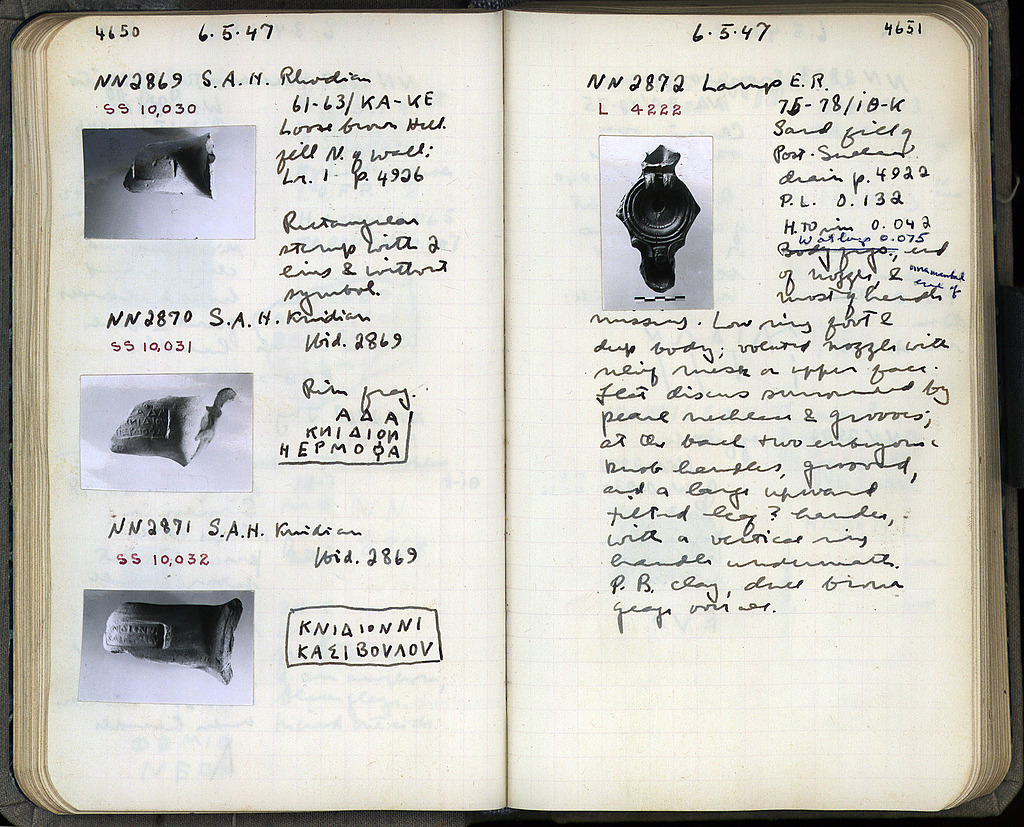 4650
6·5·47
NN2869 S.A.H. Rhodian
SS 10,030
61-63/KA-KE
Loose brown Hell.
fill N. of wall;
Lr. 1- p. 4926
Rectangular
stamp with 2
lines & without
symbol.
NN2870 S.A.H. Knidian
SS 10,031
Ibid. 2869
Rim frag.
ΑΔΑ
ΚΝΙΔΙΟΝ
ΗΕΡΜΟΦΑ
NN2871 S.A.H. Knidian
SS 10,032
Ibid. 2869
ΚΝΙΔΙΟΝΝΙ
ΚΑΣΙΒΟΥΛΟΥ
6·5·47
4651
NN2872 Lamp E.R.
L 4222
75-78/ΙΘ-Κ
Sand fill of
Post-Sullan
drain p. 4922
P.L. 0.132
H. to rim 0.042
W. at lugs 0.075
end
of nozzle, & ornamental
end of
most of handle
missing. Low ring foot &
deep body; voluted nozzle with
relief mask on upper face.
Flat discus surrounded by
pearl necklace & grooves;
at the back two embryonic
knob handles, grooved,
and a large upward
tilted leaf? handle,
with a vertical ring
handle underneath.
P.B. clay, dull brown
glaze worn